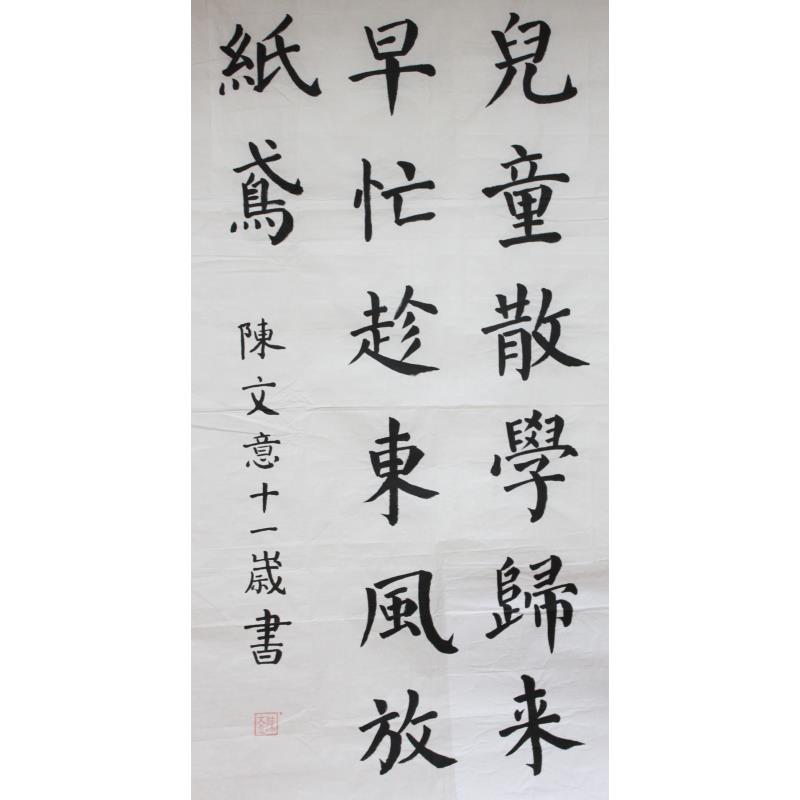 兒童散學歸来
早忙趁東風放
紙鳶
陳文意十一歲書